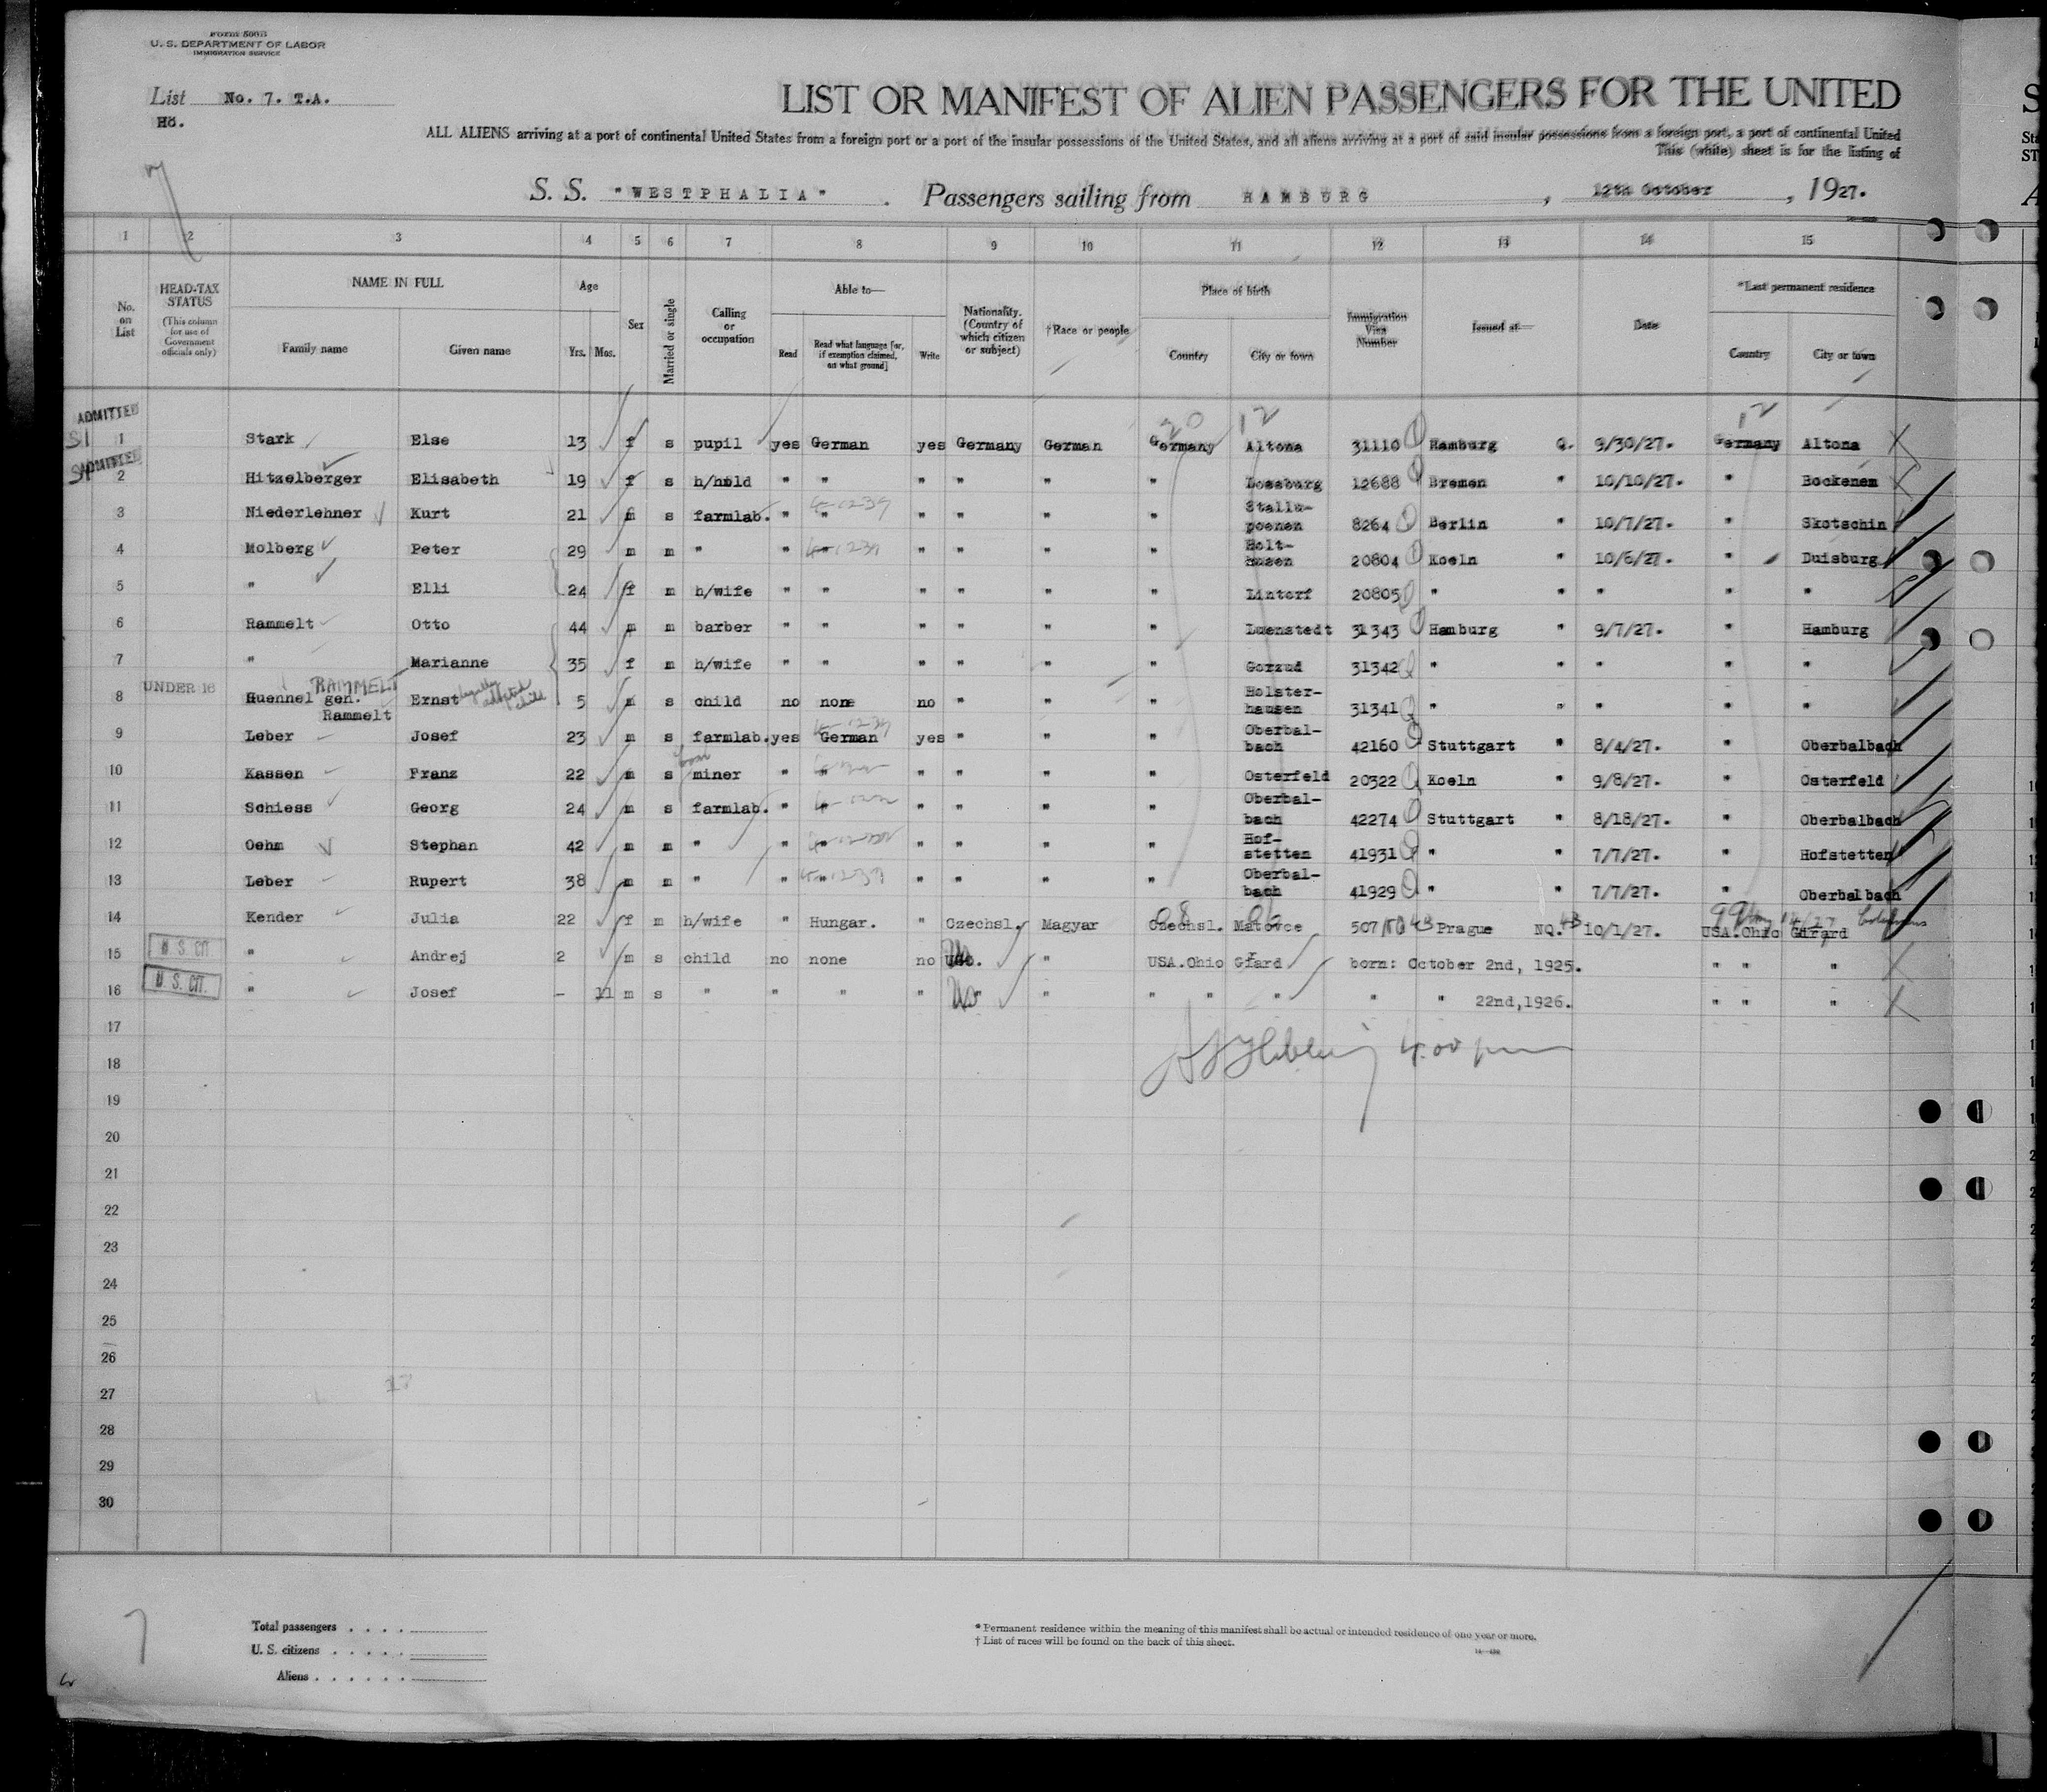 FORM 500B
U. S. DEPARTMENT OF LABOR
IMMIGRATION SERVICE
List No. 7. T.A.
Hö.
7
LIST OR MANIFEST OF ALIEN PASSENGERS FOR THE UNITED
ALL ALIENS arriving at a port of continental United States from a foreign port or a port of the insular possessions of the United States, and all aliens arriving at a port of said insular possessions from a foreign port, a port of continental United
This (white) sheet is for the listing of
S. S. "WESTPHALIA" . Passengers sailing from HAMBURG , 12th October , 1927.
1 2 3 4 5 6 7 8 9 10 11 12 13 14 15
No. on List
HEAD-TAX STATUS
(This column for use of Government officials only)
NAME IN FULL
Family name Given name
Age
Yrs. Mos.
Sex
Married or single
Calling or occupation
Able to—
Read Read what language [or, if exemption claimed, on what ground] Write
Nationality. (Country of which citizen or subject)
†Race or people
Place of birth
Country City or town
Immigration Visa Number
Issued at—
Date
*Last permanent residence
Country City or town
20 12 12
ADMITTED
SI 1 Stark Else 13 f s pupil yes German yes Germany German Germany Altona 31110 Hamburg Q. 9/30/27. Germany Altona
ADMITTED
SI 2 Hitzelberger Elisabeth 19 f s h/hold " " " " " " 12688 Bremen " 10/10/27. " Bockenem
3 Niederlehner Kurt 21 m s farmlab. " " " " " " Stallu-poenen 8264 Berlin " 10/7/27. " Skotschin
4 Molberg Peter 29 m m " " " " " " " Holt-husen 20804 Koeln " 10/6/27. " Duisburg
5 " Elli 24 f m h/wife " " " " " " Lintorf 20805 " " " " "
6 Rammelt Otto 44 m m barber " " " " " " Luenstedt 31343 Hamburg " 9/7/27. " Hamburg
7 " Marianne 35 f m h/wife " " " " " " Gorzud 31342 " " " " "
UNDER 16 RAMMELT
8 Huennel gen. Rammelt Ernst legally adopted child 5 m s child no none no " " " Holster-hausen 31341 " " " " "
9 Leber Josef 23 m s farmlab. yes German yes " " " Oberbal-bach 42160 Stuttgart " 8/4/27. " Oberbalbach
10 Kassen Franz 22 m s miner " " " " " " Osterfeld 20322 Koeln " 9/8/27. " Osterfeld
11 Schiess Georg 24 m s farmlab. " " " " " " Oberbal-bach 42274 Stuttgart " 8/18/27. " Oberbalbach
12 Oehm Stephan 42 m m " " " " " " " Hof-stetten 41931 " " 7/7/27. " Hofstetten
13 Leber Rupert 38 m m " " " " " " " Oberbal-bach 41929 " " 7/7/27. " Oberbalbach
14 Kender Julia 22 f m h/wife " Hungar. " Czechsl. Magyar Czechsl. Matovce 507 Prague NQ. 10/1/27. USA.Ohio Girard
U. S. CIT.
15 " Andrej 2 m s child no none no " USA.Ohio Girard born: October 2nd, 1925. " " "
U. S. CIT.
16 " Josef – 11 m s " " " " " " " " " " 22nd,1926. " " "
17
18 4.00 pm
19
20
21
22
23
24
25
26
27
28
29
30
Total passengers
U. S. citizens
Aliens
7
* Permanent residence within the meaning of this manifest shall be actual or intended residence of one year or more.
† List of races will be found on the back of this sheet.